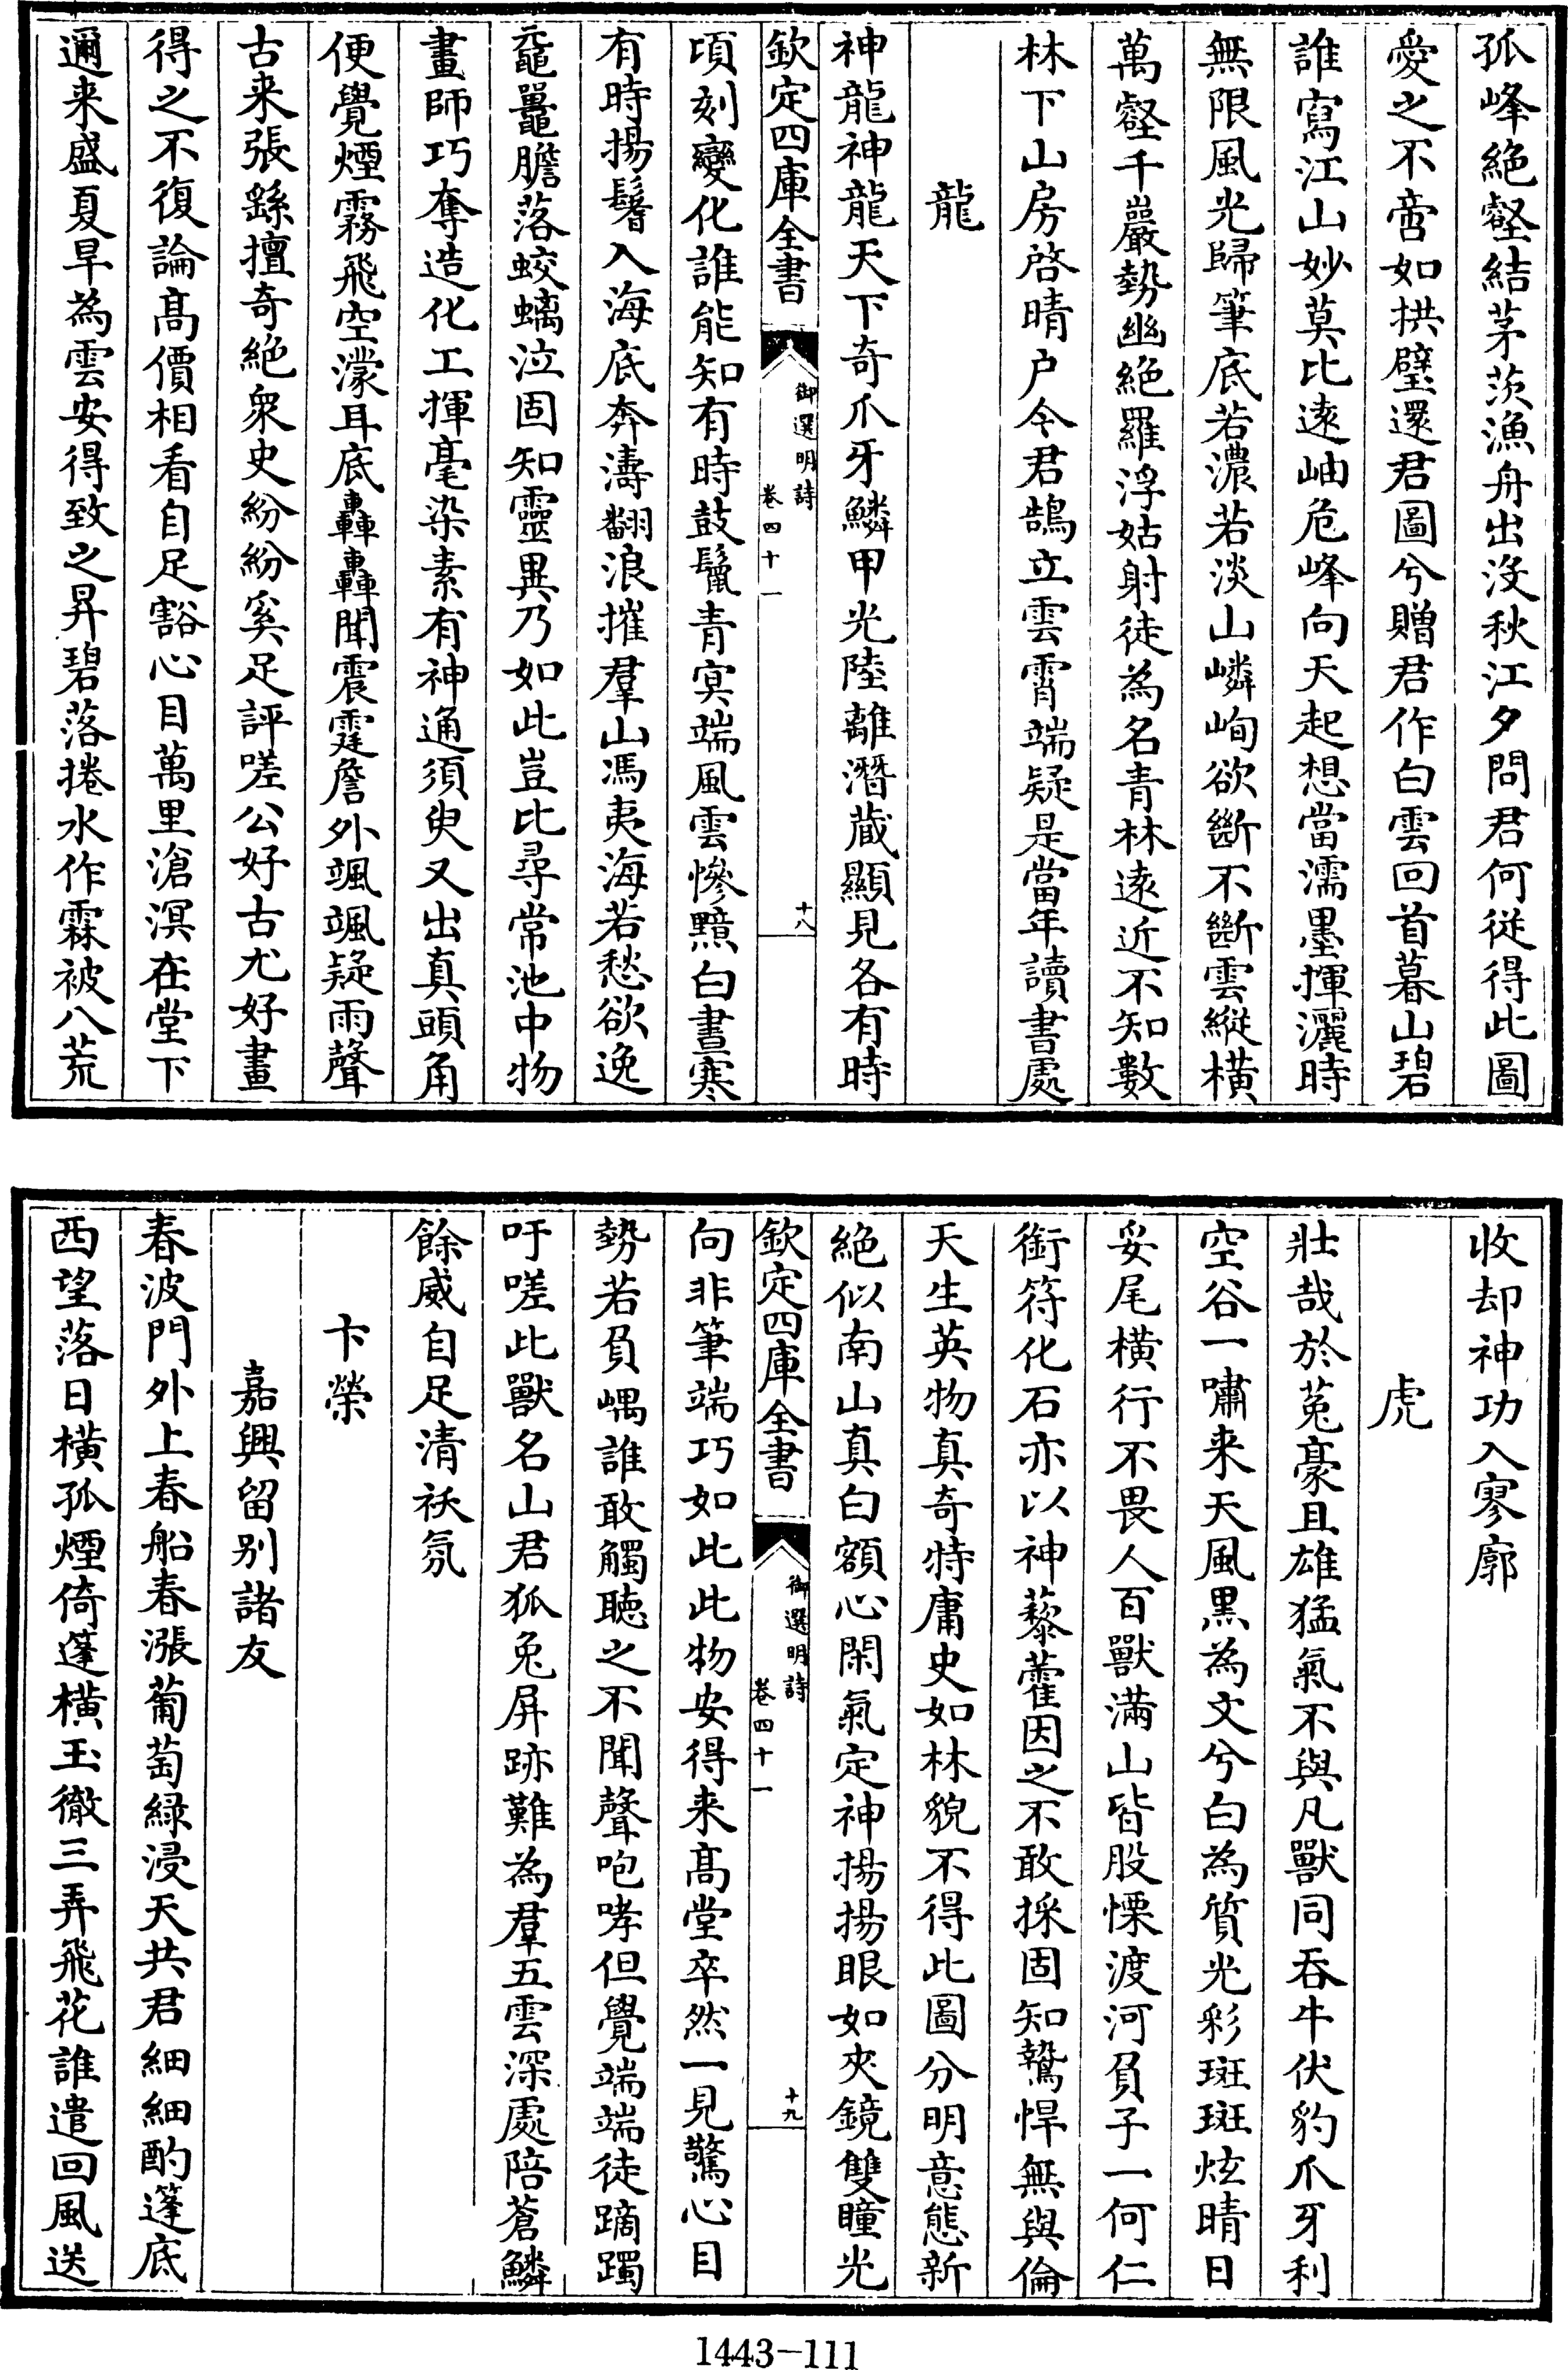 孤峰絕壑結茅茨漁舟出沒秋江夕問君何從得此圖
愛之不啻如拱璧還君圖兮贈君作白雲回首暮山碧
誰寫江山妙莫比遠岫危峰向天起想當濡墨揮灑時
無限風光歸筆底若濃若淡山嶙峋欲斷不斷雲縱橫
萬壑千巖勢幽絕羅浮姑射徒為名青林遠近不知數
林下山房啓晴戶令君鵠立雲霄端疑是當年讀書處
龍
神龍神龍天下奇爪牙鱗甲光陸離潛藏顯見各有時
欽定四庫全書
御選明詩
卷四十一
十八
頃刻變化誰能知有時鼓鬣青冥端風雲慘黯白晝寒
有時揚鬐入海底奔濤翻浪摧羣山馮夷海若愁欲逸
黿鼉膽落蛟螭泣固知靈異乃如此豈比尋常池中物
畫師巧奪造化工揮毫染素有神通須臾又出真頭角
便覺煙霧飛空濛耳底轟轟聞震霆詹外颯颯疑雨聲
古来張繇擅奇絕衆史紛紛奚足評嗟公好古尤好畫
得之不復論高價相看自足豁心目萬里滄溟在堂下
邇来盛夏旱為雲安得致之昇碧落捲水作霖被八荒
收却神功入寥廓
虎
壯哉於菟豪且雄猛氣不與凡獸同吞牛伏豹爪牙利
空谷一嘯来天風黑為文兮白為質光彩斑斑炫晴日
妥尾橫行不畏人百獸滿山皆股慄渡河負子一何仁
銜符化石亦以神藜藿因之不敢採固知鷙悍無與倫
天生英物真奇特庸史如林貌不得此圖分明意態新
絕似南山真白額心閑氣定神揚揚眼如夾鏡雙瞳光
欽定四庫全書
御選明詩
卷四十一
十九
向非筆端巧如此此物安得来高堂卒然一見驚心目
勢若負嵎誰敢觸聽之不聞聲咆哮但覺端端徒蹢躅
吁嗟此獸名山君狐兔屏跡難為羣五雲深處陪蒼鱗
餘威自足清祅氛
卞榮
嘉興留別諸友
春波門外上春船春漲葡萄綠浸天共君細細酌篷底
西望落日橫孤煙倚篷橫玉徹三弄飛花誰遣回風送
1443-111